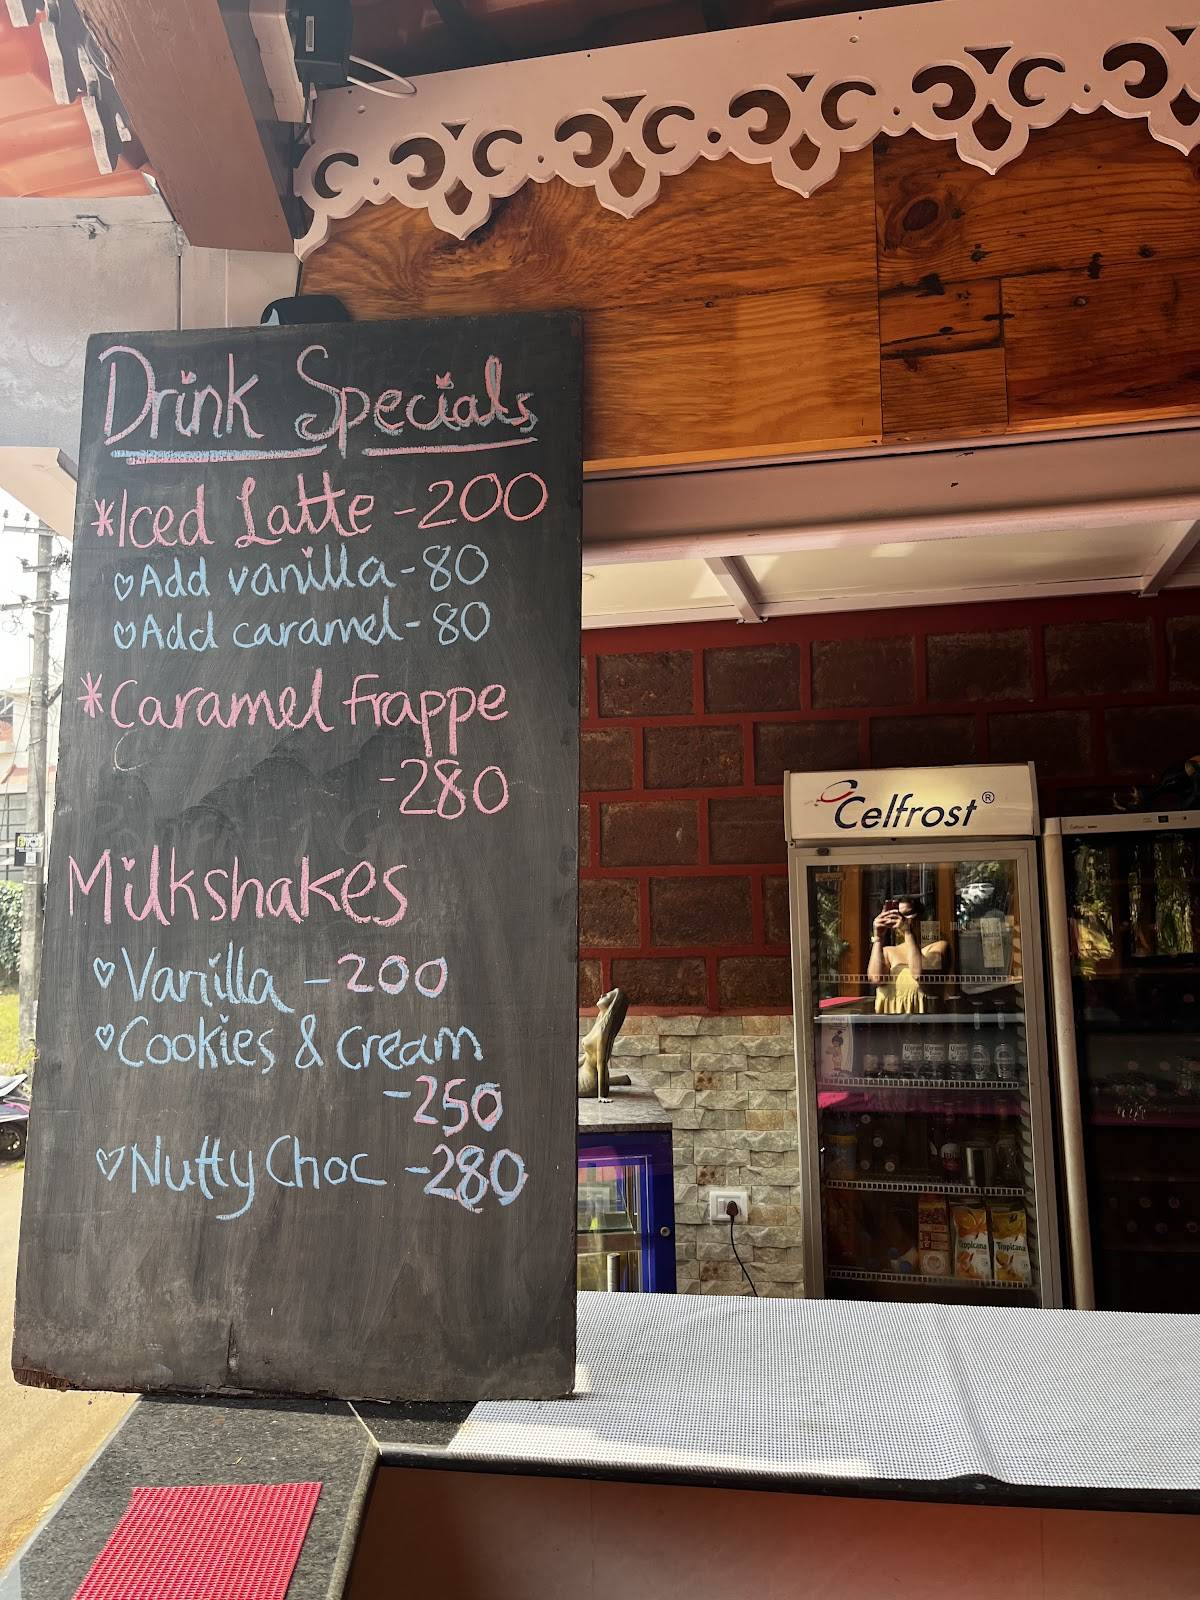 Drink Specials
*Iced Latte - 200
♡Add vanilla - 80
♡Add caramel - 80
*Caramel Frappe
- 280
Milkshakes
♡Vanilla - 200
♡Cookies & Cream
- 250
♡Nutty Choc - 280
Celfrost®
Tropicana
Tropicana